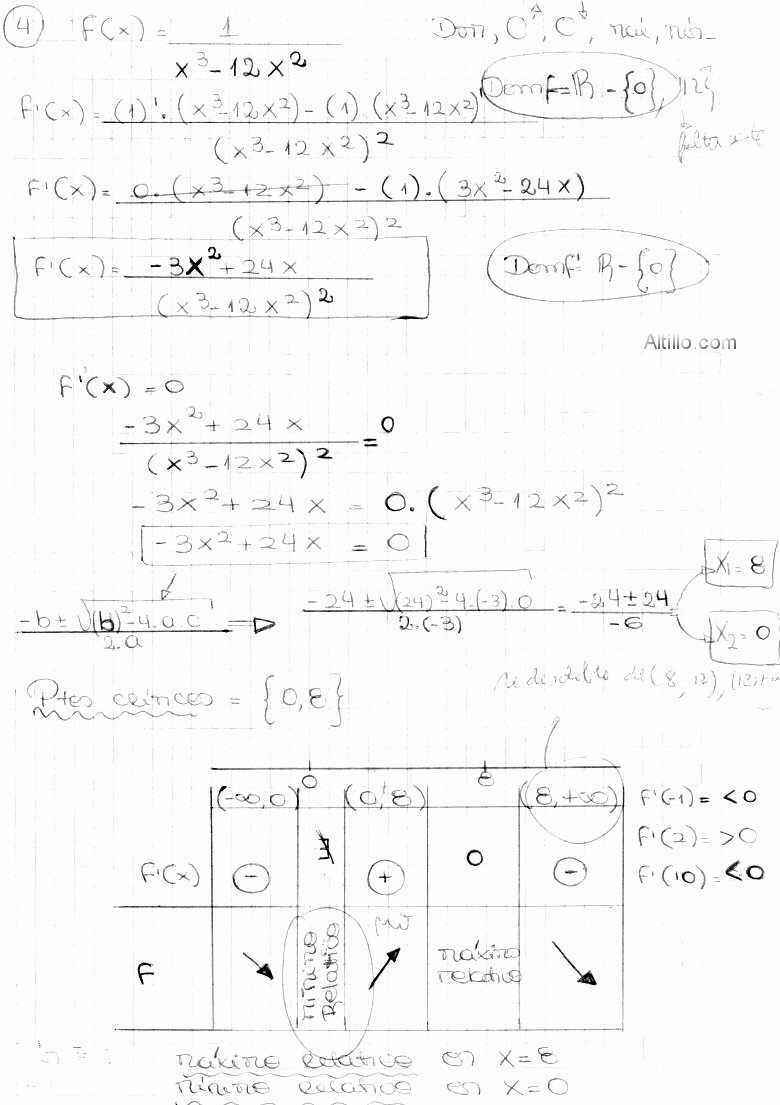 4 F(x) = 1 / (x³-12x²)
Dom, C↑, C↓, máx, mín
Domf = ℝ - {0, 12}
F'(x) = ((1)'·(x³-12x²) - (1)·(x³-12x²)') / (x³-12x²)²
falta
F'(x) = (0·(x³-12x²) - (1)·(3x²-24x)) / (x³-12x²)²
F'(x) = (-3x²+24x) / (x³-12x²)²
Domf' ℝ - {0}
Altillo.com
F'(x) = 0
(-3x²+24x) / (x³-12x²)² = 0
-3x²+24x = 0·(x³-12x²)²
-3x²+24x = 0
(-b ± √((b)²-4.a.c)) / 2.a ⟹ (-24 ± √((24)²-4.(-3).0)) / 2.(-3) = (-24±24) / -6
X₁ = 8
X₂ = 0
se desdoble de (8, 12), (12,+∞
Ptos críticos = {0,8}
0 8
(-∞,0) (0,8) (8,+∞)
F'(-1) = <0
F'(2) = >0
F'(10) = <0
F'(x) - ∄ + 0 -
F ↘ mínimo Relativo ↗ máximo relativo ↘
máximo relativo en x=8
mínimo relativo en x=0